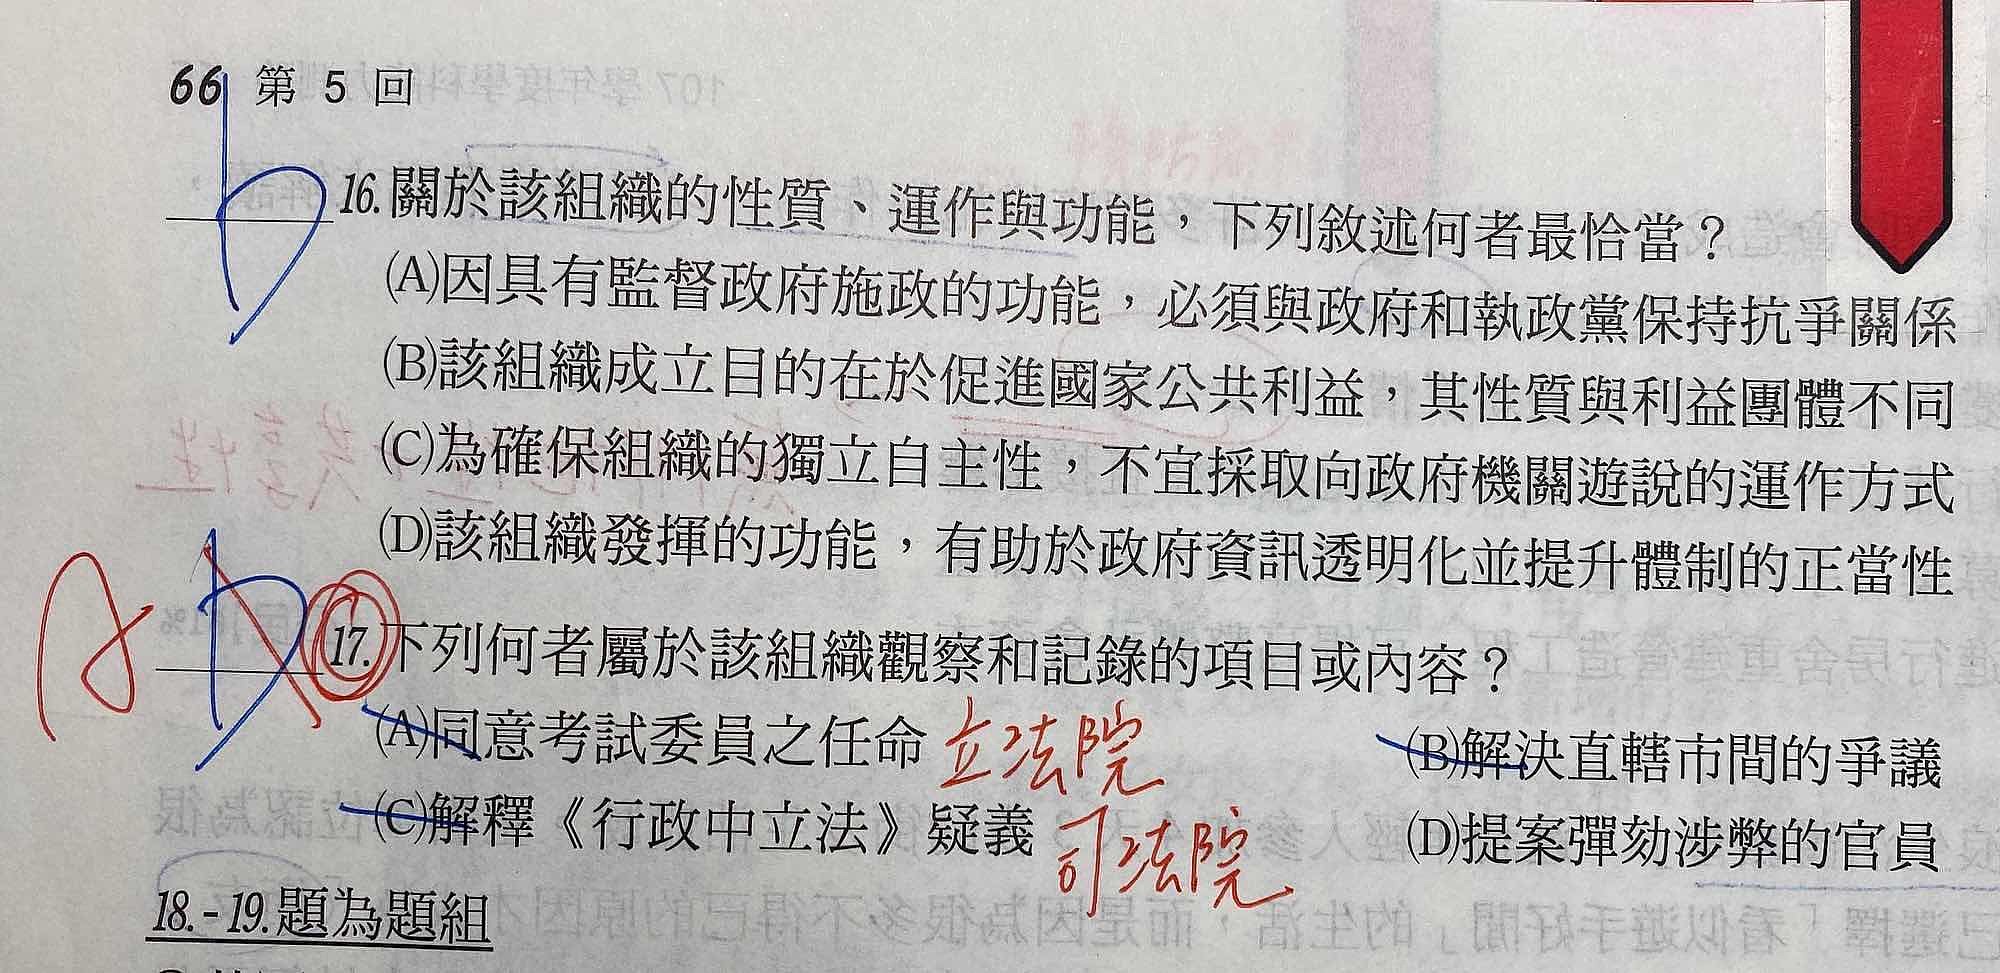 66 第 5 回
b 16.關於該組織的性質、運作與功能，下列敘述何者最恰當？
(A)因具有監督政府施政的功能，必須與政府和執政黨保持抗爭關係
(B)該組織成立目的在於促進國家公共利益，其性質與利益團體不同
(C)為確保組織的獨立自主性，不宜採取向政府機關遊說的運作方式
(D)該組織發揮的功能，有助於政府資訊透明化並提升體制的正當性
A D 17.下列何者屬於該組織觀察和記錄的項目或內容？
(A)同意考試委員之任命 立法院 (B)解決直轄市間的爭議
(C)解釋《行政中立法》疑義 司法院 (D)提案彈劾涉弊的官員
18.-19.題為題組